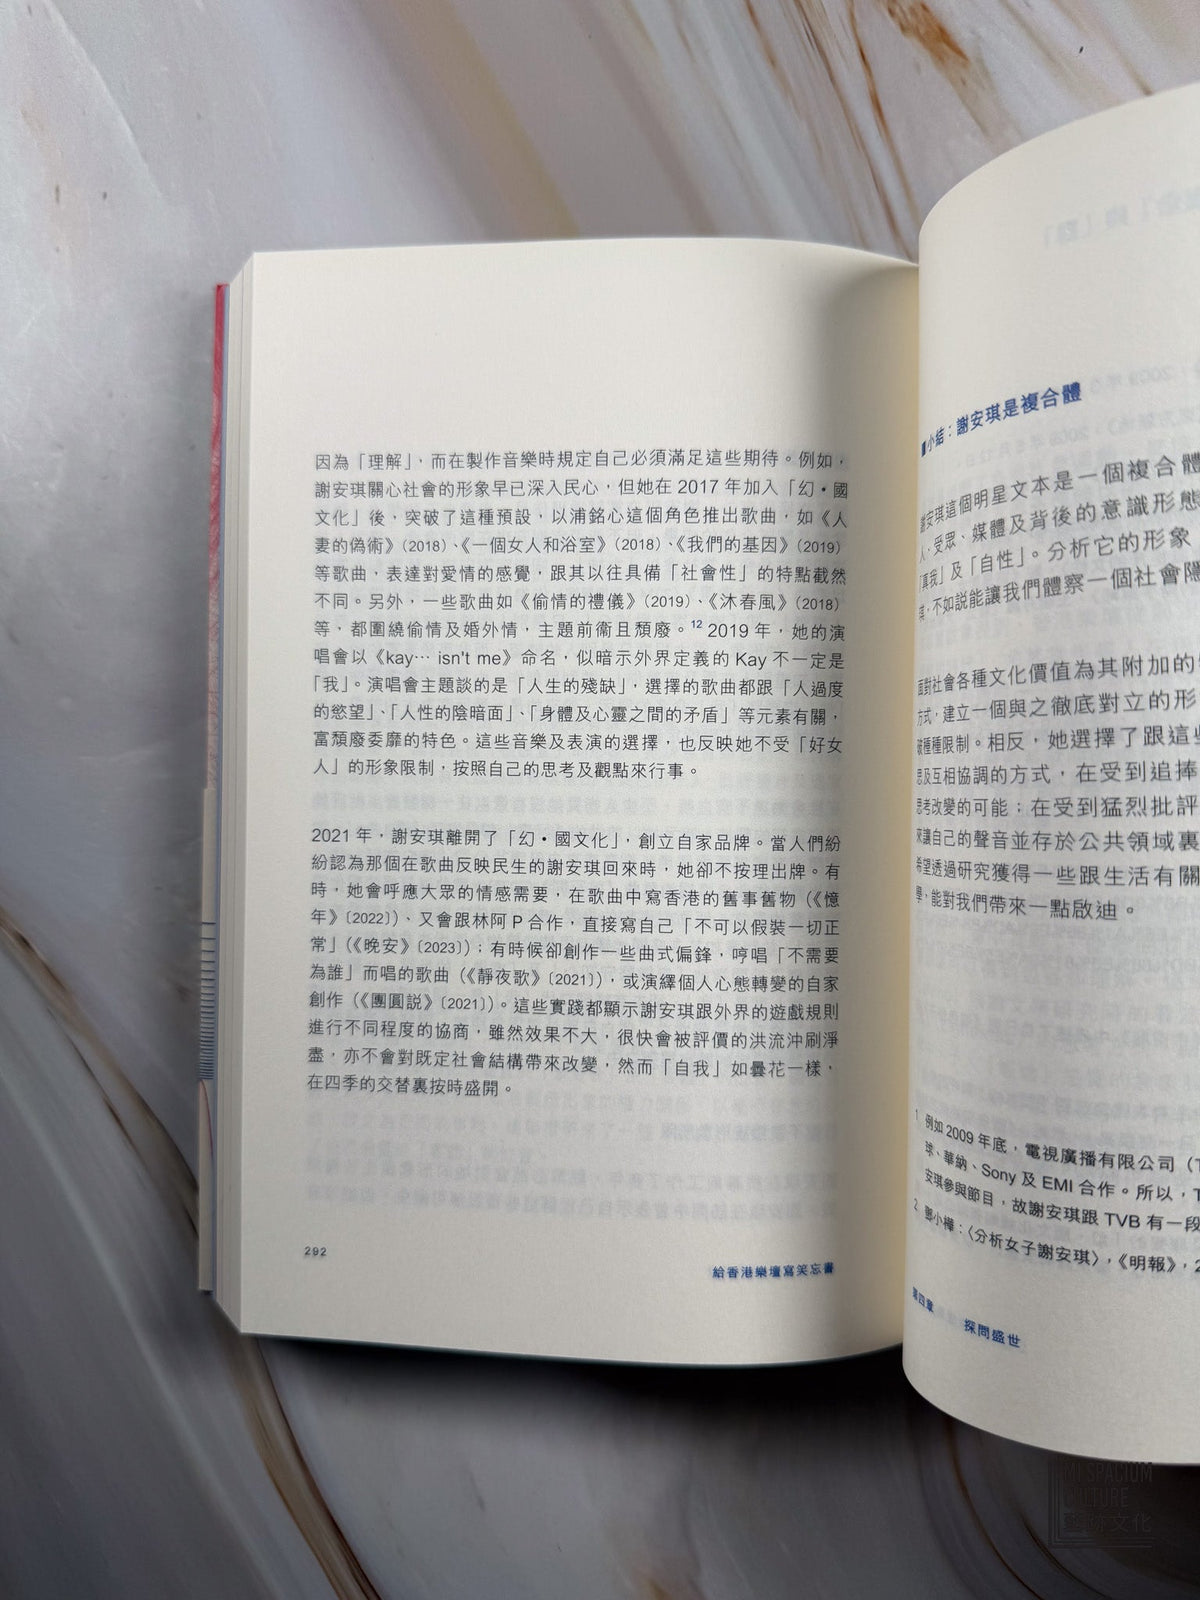 因為「理解」、而在製作音樂時規定自己必須滿足這些期待。例如，
謝安琪關心社會的形象早已深入民心，但她在 2017 年加入「幻•國
文化」後，突破了這種預設，以浦銘心這個角色推出歌曲，如《人
妻的偽術》（2018）、《一個女人和浴室》（2018）、《我們的基因》（2019）
等歌曲，表達對愛情的感覺，跟其以往具備「社會性」的特點截然
不同。另外，一些歌曲如《偷情的禮儀》（2019）、《沐春風》（2018）
等，都圍繞偷情及婚外情，主題前衞且頹廢。12 2019 年，她的演
唱會以《kay… isn't me》命名，似暗示外界定義的 Kay 不一定是
「我」。演唱會主題談的是「人生的殘缺」，選擇的歌曲都跟「人過度
的慾望」、「人性的陰暗面」、「身體及心靈之間的矛盾」等元素有關，
富頹廢委靡的特色。這些音樂及表演的選擇，也反映她不受「好女
人」的形象限制，按照自己的思考及觀點來行事。
2021 年，謝安琪離開了「幻•國文化」，創立自家品牌。當人們紛
紛認為那個在歌曲反映民生的謝安琪回來時，她卻不按理出牌。有
時，她會呼應大眾的情感需要，在歌曲中寫香港的舊事舊物（《憶
年》〔2022〕）、又會跟林阿 P 合作，直接寫自己「不可以假裝一切正
常」（《晚安》〔2023〕）；有時候卻創作一些曲式偏鋒，哼唱「不需要
為誰」而唱的歌曲（《靜夜歌》〔2021〕），或演繹個人心態轉變的自家
創作（《團圓説》〔2021〕）。這些實踐都顯示謝安琪跟外界的遊戲規則
進行不同程度的協商，雖然效果不大，很快會被評價的洪流沖刷淨
盡，亦不會對既定社會結構帶來改變，然而「自我」如曇花一樣，
在四季的交替裏按時盛開。
292
給香港樂壇寫笑忘書
■小結：謝安琪是複合體
謝安琪這個明星文本是一個複合體
人、受眾、媒體及背後的意識形態
「真我」及「自性」。分析它的形象
琪，不如説能讓我們體察一個社會隱
面對社會各種文化價值為其附加的
方式，建立一個與之徹底對立的形
破種種限制。相反，她選擇了跟這些
思及互相協調的方式，在受到追捧
思考改變的可能；在受到猛烈批評
來讓自己的聲音並存於公共領域裏
希望透過研究獲得一些跟生活有關
學，能對我們帶來一點啟迪。
1 例如 2009 年底，電視廣播有限公司（T
球、華納、Sony 及 EMI 合作。所以，T
安琪參與節目，故謝安琪跟 TVB 有一段
2 鄧小樺：〈分析女子謝安琪〉，《明報》，2
第四章 探問盛世
MI SPACIUM
CULTURE
文化